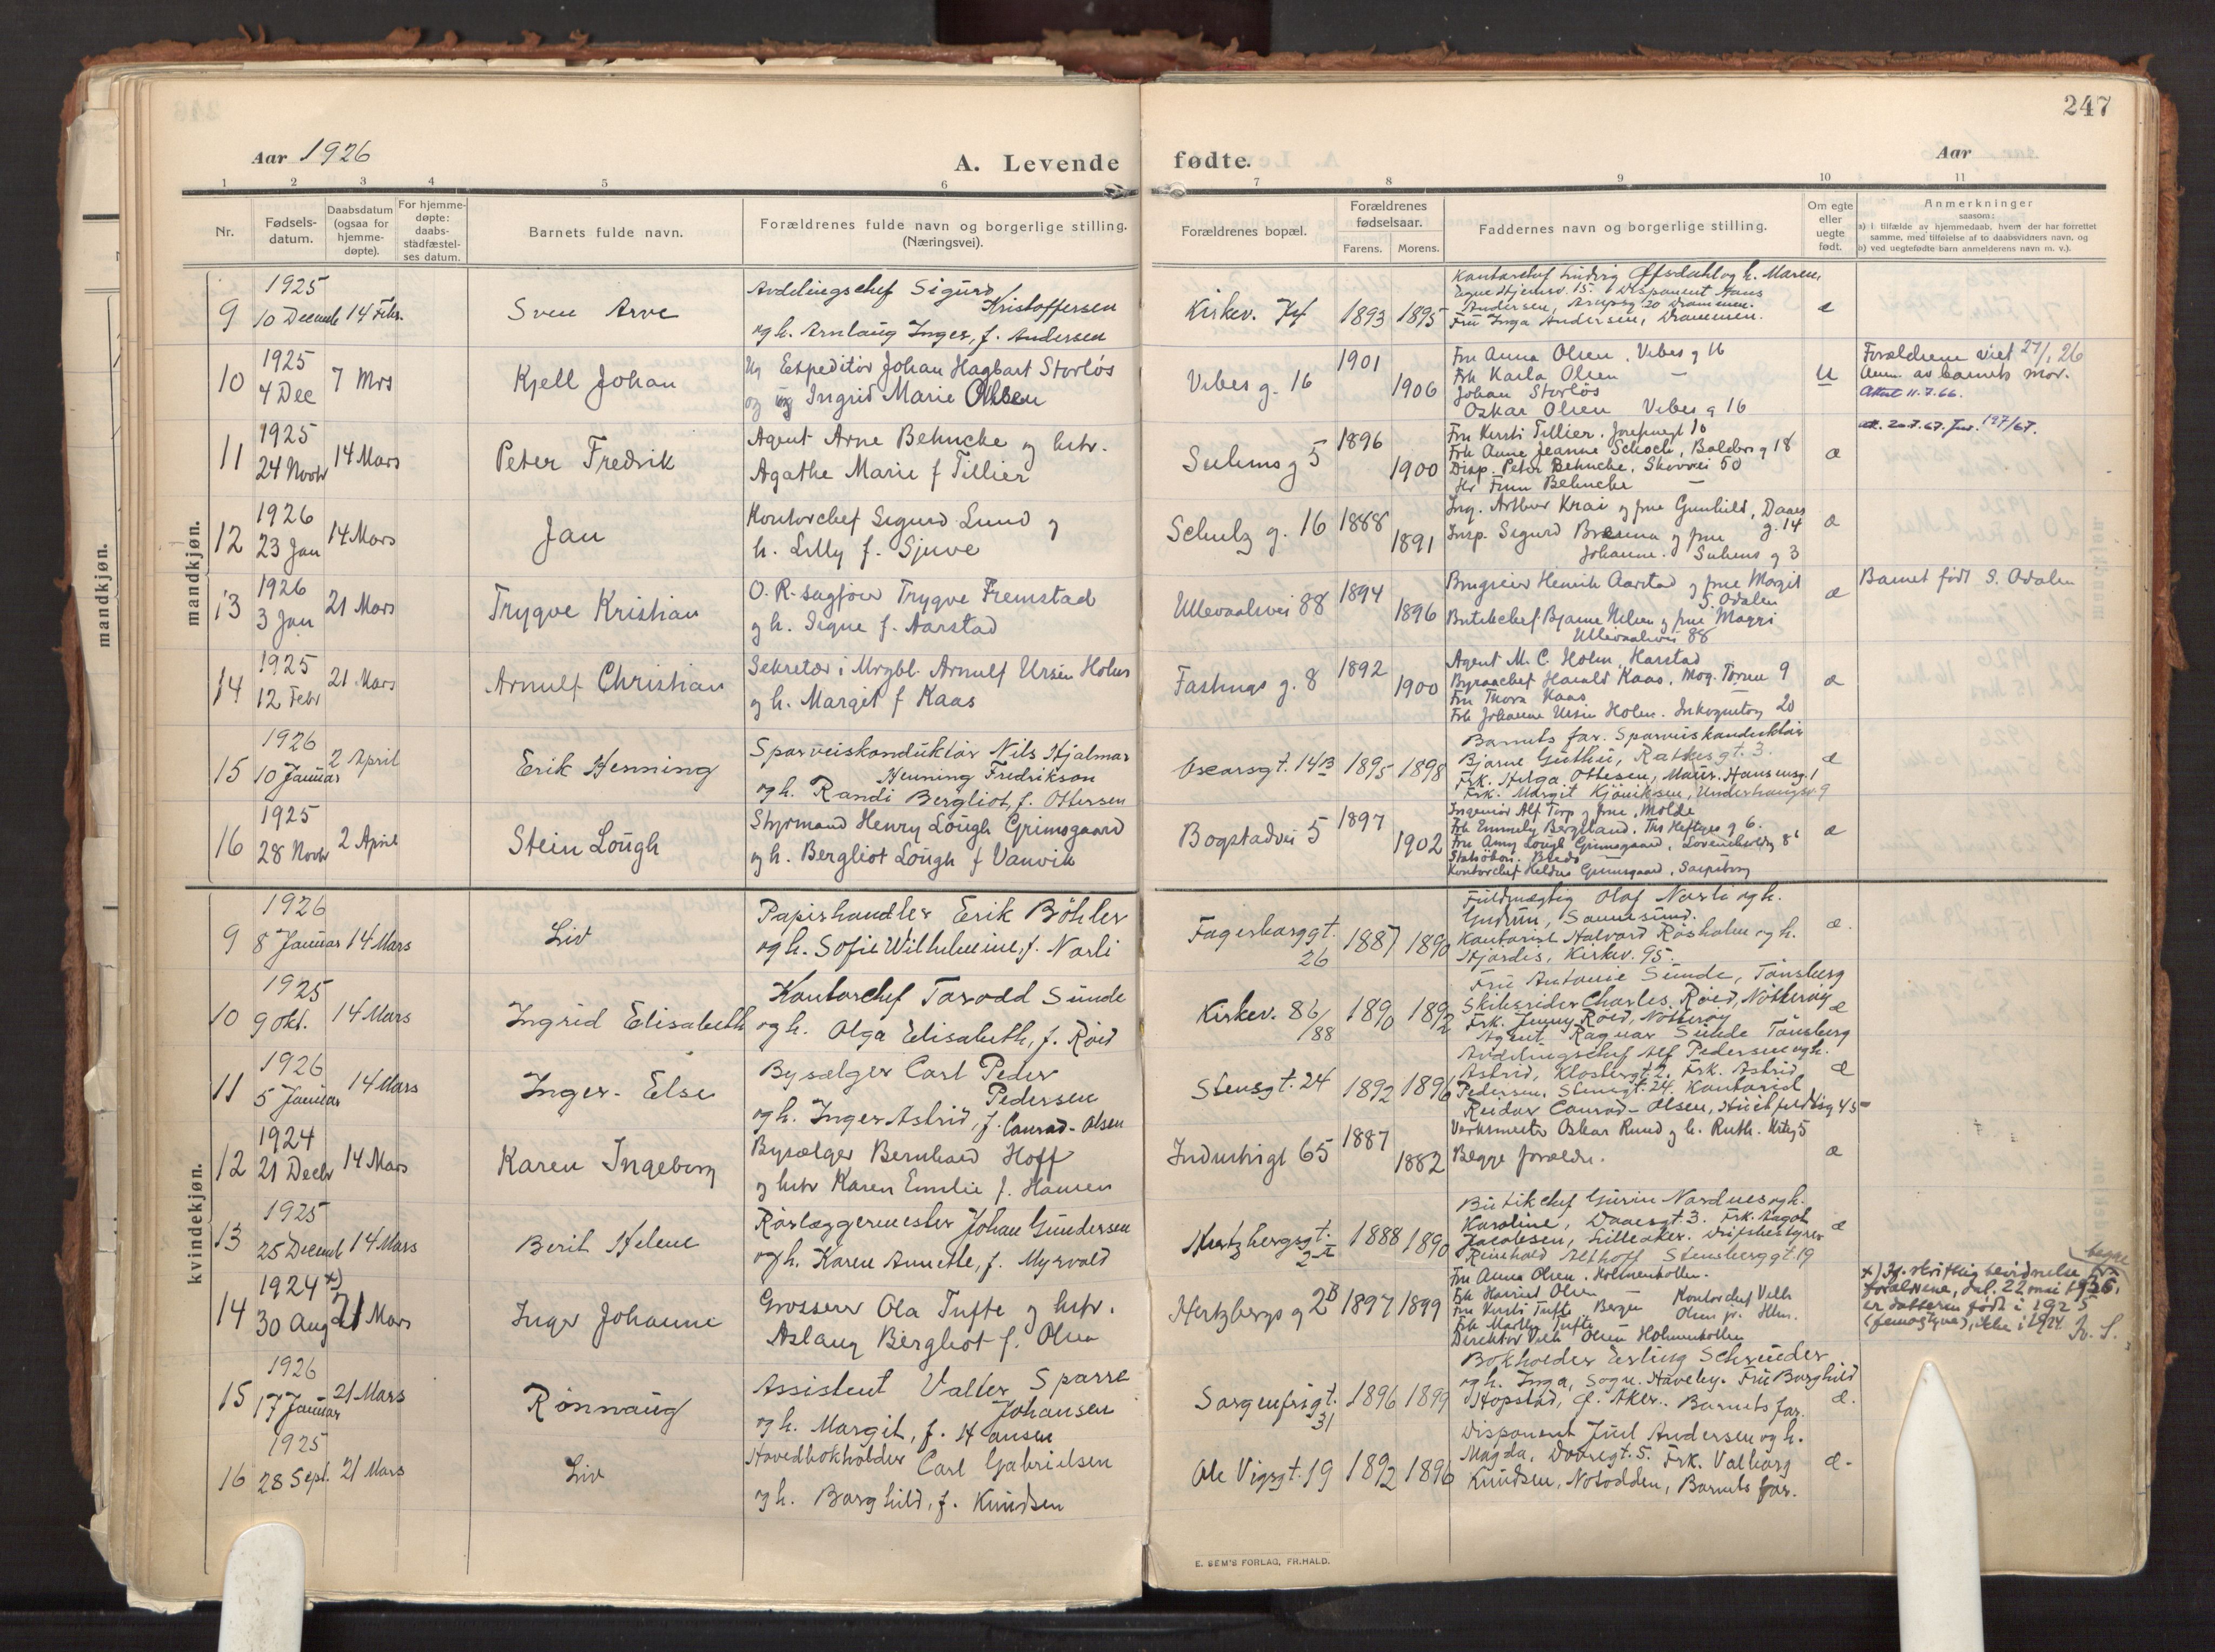 247
Aar 1926
A. Levende fødte.
Aar
1 2 3 4 5 6 7 8 9 10 11
Nr.
Fødsels-
datum.
Daabsdatum
(ogsaa for
hjemme-
døpte).
For hjemme-
døpte:
daabs-
stadfæstel-
ses datum.
Barnets fulde navn.
Forældrenes fulde navn og borgerlige stilling.
(Næringsvei).
Forældrenes bopæl.
Forældrenes
fødselsaar.
Farens. Morens.
Faddernes navn og borgerlige stilling.
Om egte
eller
uegte
født.
Anmerkninger
saasom:
a) i tilfælde av hjemmedaab, hvem der har forrettet
samme, med tilføielse af to daabsvidners navn, og
b) ved uegtefødte barn anmelderens navn m. v.).
mandkjøn.
mandkjøn.
9
1925
10 Decemb 14 Febr.
Sven Arve
Avdelingschef Sigurd
Kristoffersen
og h. Arnlaug Inger, f. Andersen
Kirkev. 74
1893 1895
Kontorchef Ludvig Ofsdahl og h. Maren,
Egne Hjemsv. 15. Disponent Hans
Andersen, 20 Drammen.
Fru Inga Andersen, Drammen.
e
10
1925
4 Dec 7 Mrs
Kjell Johan
Ug Expeditør Johan Hagbart Storløs
og ug Ingrid Marie Olsen
Vibes g. 16
1901
1906
Fru Anna Olsen. Vibes g 16
Frk Karla Olsen —
Johan Storløs
Oskar Olsen Vibes g 16
u
Forældrene viet 27/1 26
Anm. av barnets mor.
Attest 11.7.66.
11
1925
24 Novbr 14 Mars
Peter Fredrik
Agent Arne Behncke og hstr.
Agathe Marie f Tillier
Suhms g 5
1896
1900
Fru Kirsti Tillier. Josefinegt 10
Frk Anne Jeanne Schoch, Balders g 18
Disp. Peter Behncke. Skovvei 50
Hr Finn Behncke —
æ
att. 20.7.67. Jnr. 197/67.
12
1926
23 Jan 14 Mars
Jan
Kontorchef Sigurd Lund og
h. Lilly f. Sjuve
Schulz g. 16
1888
1891
Ing. Arthur Krai og frue Gunhild, Daaes
g. 14
Insp. Sigurd Brenna og frue
Johanne. Suhms g 3
æ
13
1926
3 Jan 21 Mars
Trygve Kristian
O. R-sagfører Trygve Fremstad
og h. Signe f. Aarstad
Ullevaalsvei 88
1894
1896
Brugseier Henrik Aarstad og frue Margit
S. Odalen
Butikchef Bjarne Nilsen og frue Maggi
Ullevaalsvei 88
æ
Barnet født S. Odalen
14
1925
12 Febr 21 Mars
Arnulf Christian
Sekretær i Mrgbl. Arnulf Ursin Holm
og h. Margit f Kaas
Fastings g. 8
1892
1900
Agent M. C. Holm, Harstad
Byraachef Harald Kaas. Mog. Torsen 9
Fru Thora Kaas —
Frk Johanne Ursin Holm. Inkognitog 20
æ
15
1926
10 Januar 2 April
Erik Henning
Sporveiskonduktør Nils Hjalmar
Henning Fredrikson
og h. Randi Bergliot, f. Ottersen
Oscarsgt. 14B
1895 1898
Barnets far. Sporveiskonduktør
Bjarne Guthu, Rathkesgt. 3.
Frk. Helga Ottesen, Maur. Hansensg. 1
Frk. Margit Kjöniksen, Underhaugsv. 9
æ
16
1925
28 Novbr 2 April
Stein Lough
Styrmand Henry Lough Grimsgaard
og h. Bergliot Lough f Vanvik
Bogstadvei 5
1897
1902
Ingeniør Alf Torp og frue, Molde
Frk Emmely Bergland. Ths Heftyes g 6.
Fru Amy Lough Grimsgaard, Løvenskioldsg 8
Kontorchef Grimsgaard, Sarpsborg
æ
kvindekjøn.
9
1926
8 Januar 14 Mars
Liv
Papirhandler Erik Böhler
og h. Sofie Wilhelmine, f. Narli
Fagerborggt.
26
1887 1890
Fuldmægtig Olaf Narli og h.
Gudrun, Sannesund.
Kontorist Halvard Røsholm og h.
Hjørdis, Kirkev. 95.
æ.
10
1925
9 Okt. 14 Mars
Ingrid Elisabeth
Kontorchef Tarodd Sunde
og h. Olga Elisabeth, f. Röed
Kirkev. 86
/88
1890 1892
Fru Antonie Sunde, Tønsberg
Skibsrider Charles Röed, Nötteröy
Frk. Jenny Röed, Nötteröy
Agent Ragnar Sunde Tønsberg
æ
11
1926
5 Januar 14 Mars
Inger-Else
Bysælger Carl Peder
Pedersen
og h. Inger Astrid, f. Conrad-Olsen
Stensgt. 24
1892 1896
Avdelingschef Alf Pedersen og h.
Astrid, Klosterg. 2. Frk. Astrid
Pedersen, Stensgt. 24. Kontorist
Reidar Conrad-Olsen, 45
æ
12
1924
21 Decbr 14 Mars
Karen Ingeborg
Bysælger Bernhard Hoff
og hstr Karen Emilie f. Hansen
Industrigt 65
1887
1882
Verksmester Oskar Rund og h. Ruth. 5
Begge forældre.
æ
13
1925
25 Decemb 14 Mars
Berit Helene
Rørlæggermester Johan Gundersen
og h. Karen Annethe, f. Myrvold
Hertzbergsgt.
2 II
1888 1890
Butikchef Nordnes og h.
Karoline, Daaesgt. 3. Frk. Aagot
Jacobsen, Lilleaker. Driftsbestyrer
Reinhold Althoff Stensberggt. 19
æ
14
1924 x)
30 Aug 21 Mars
Inger Johanne
Grosserer Ola Tufte og hstr.
Aslaug Bergliot f. Olsen
Hertzbergs g 2B
1897 1899
Fru Anna Olsen. Holmenkollen.
Frk Harriet Olsen —
Fru Kirsti Tufte, Bergen
Kontorchef Vilh
Olsen jr. Hlm.
Frk Marthy Tufte
Direktør Vilh Olsen Holmenkollen
x) If. skriftlig bevidnelse fra begge
forældrene, dat. 22 mai 1936,
er datteren født i 1925
(femogtyve), ikke i 1924
15
1926
17 Januar 21 Mars
Rønnaug
Assistent Valter Sparre
Johansen
og h. Margit, f. Hansen
Sorgenfrigt.
31
1896 1899
Bokholder Erling Schrøder
og h. Inga, Sogn. Haveby. Fru Borghild
Hopstad, Ø. Aker. Barnets far.
æ.
16
1925
28 Sept. 21 Mars
Liv
Hovedbokholder Carl Gabrielsen
og h. Borghild, f. Knudsen
Ole Vigsgt. 19
1892 1896
Disponent Juul Andersen og h.
Magda, Dovregt. 5. Frk. Valborg
Knudsen, Notodden, Barnets far.
æ.
E. SEM'S FORLAG, FR.HALD.